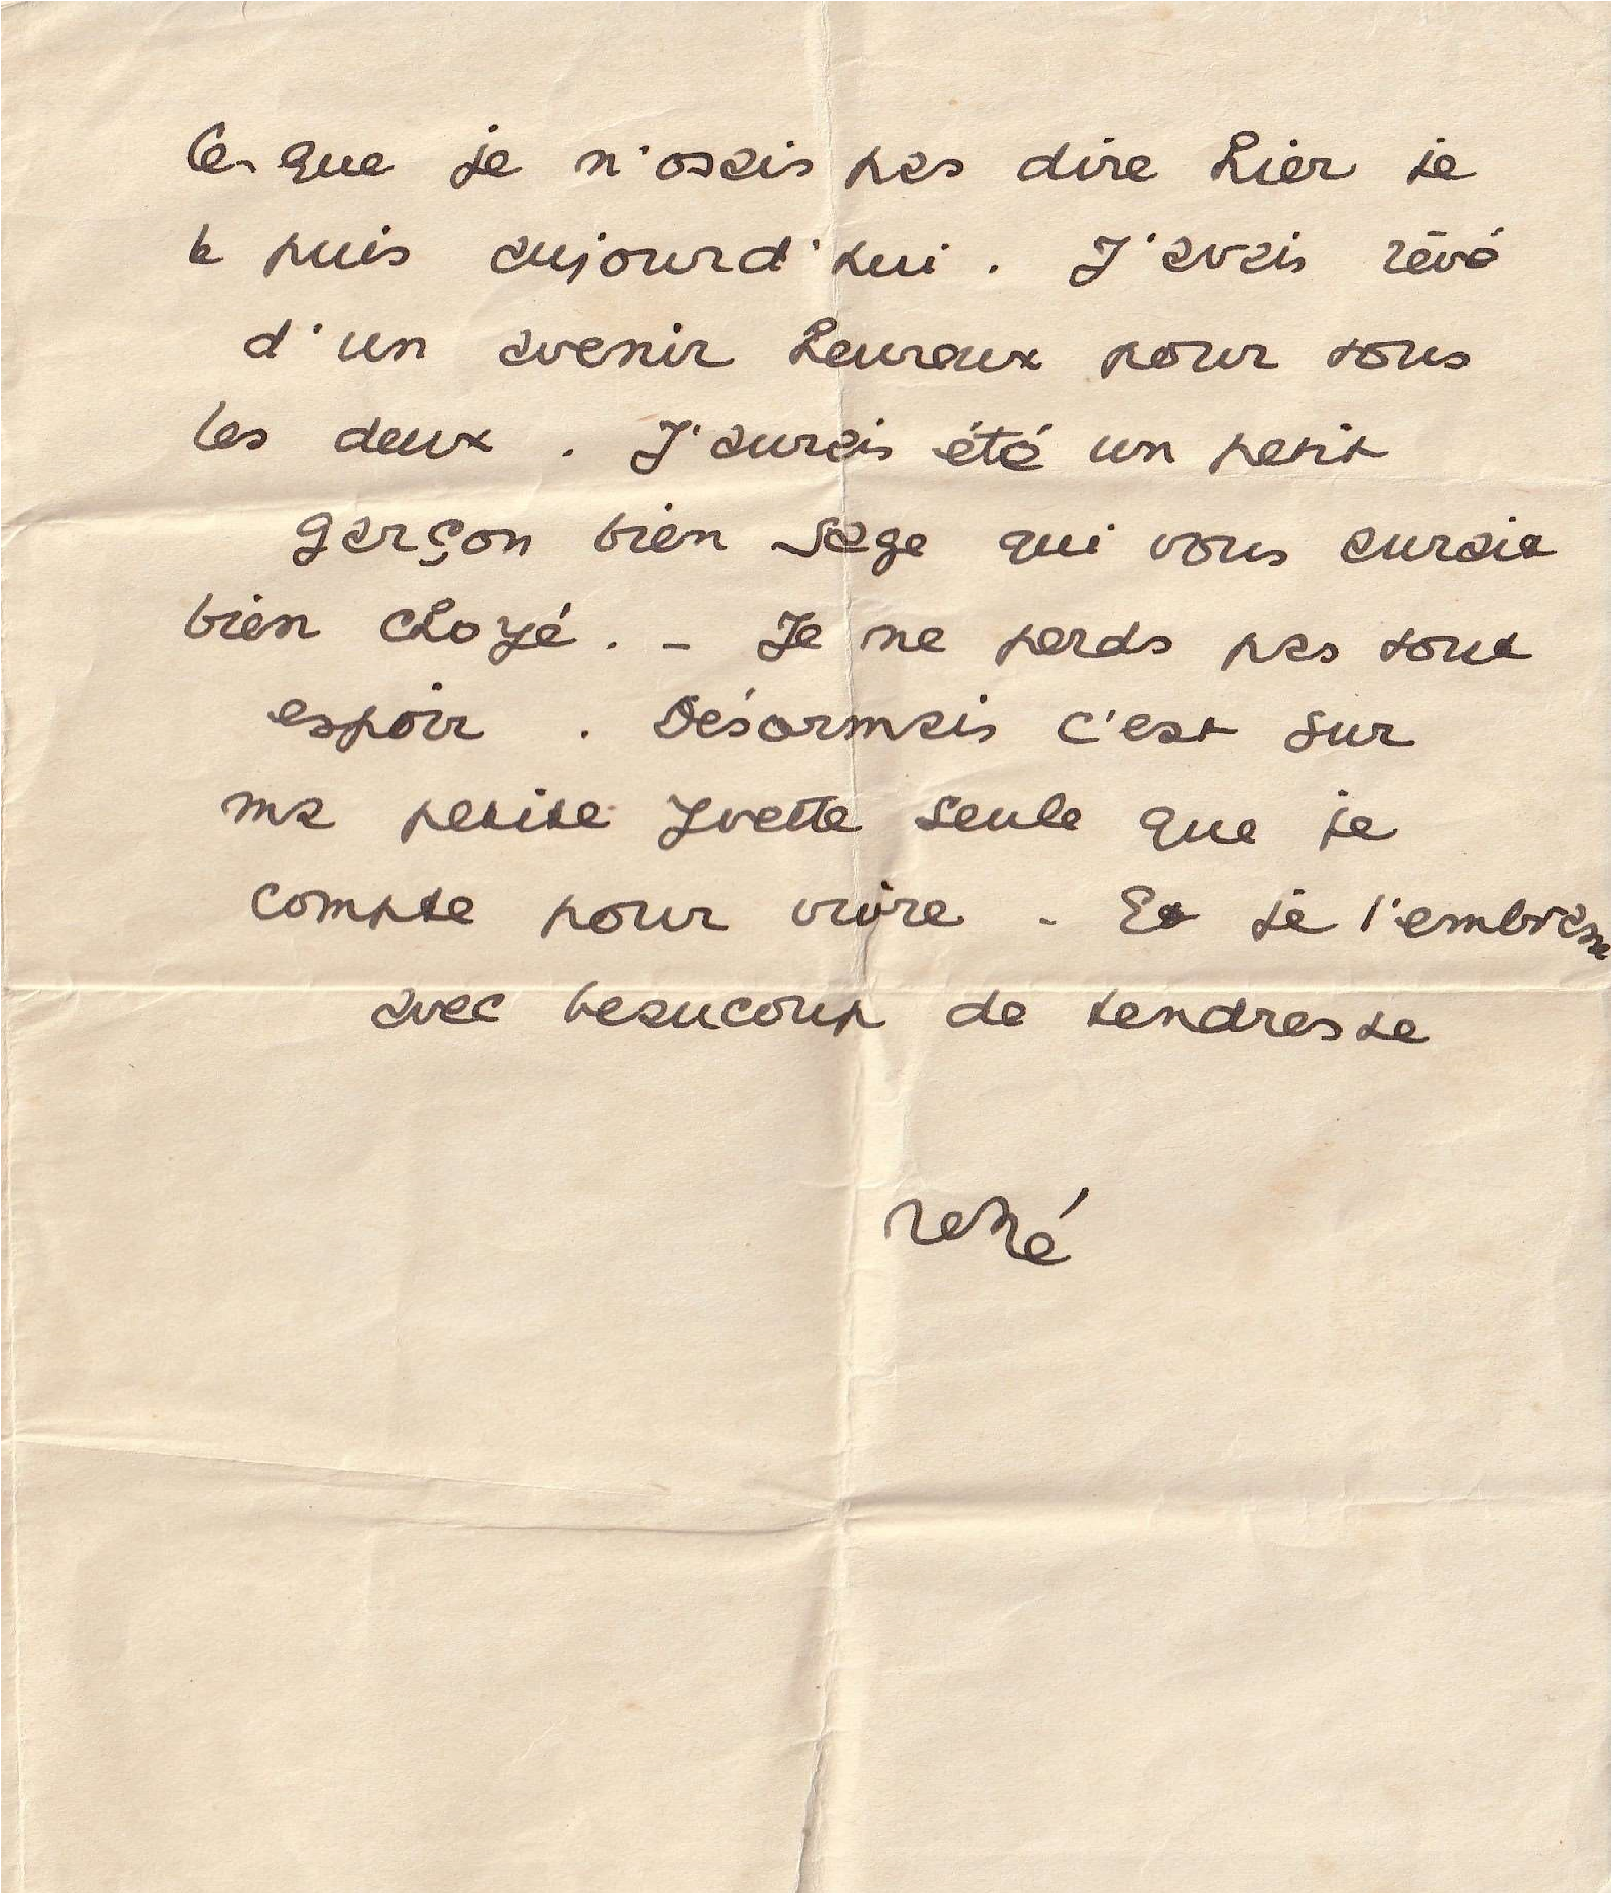 Ce que je n'osais pas dire hier je
le puis aujourd'hui . J'avais rêvé
d'un avenir heureux pour tous
les deux . J'aurais été un petit
garçon bien sage qui vous aurait
bien choyé . _ Je ne perds pas tout
espoir . Désormais c'est sur
ma petite Yvette seule que je
compte pour vivre - Et je l'embrasse
avec beaucoup de tendresse
rené